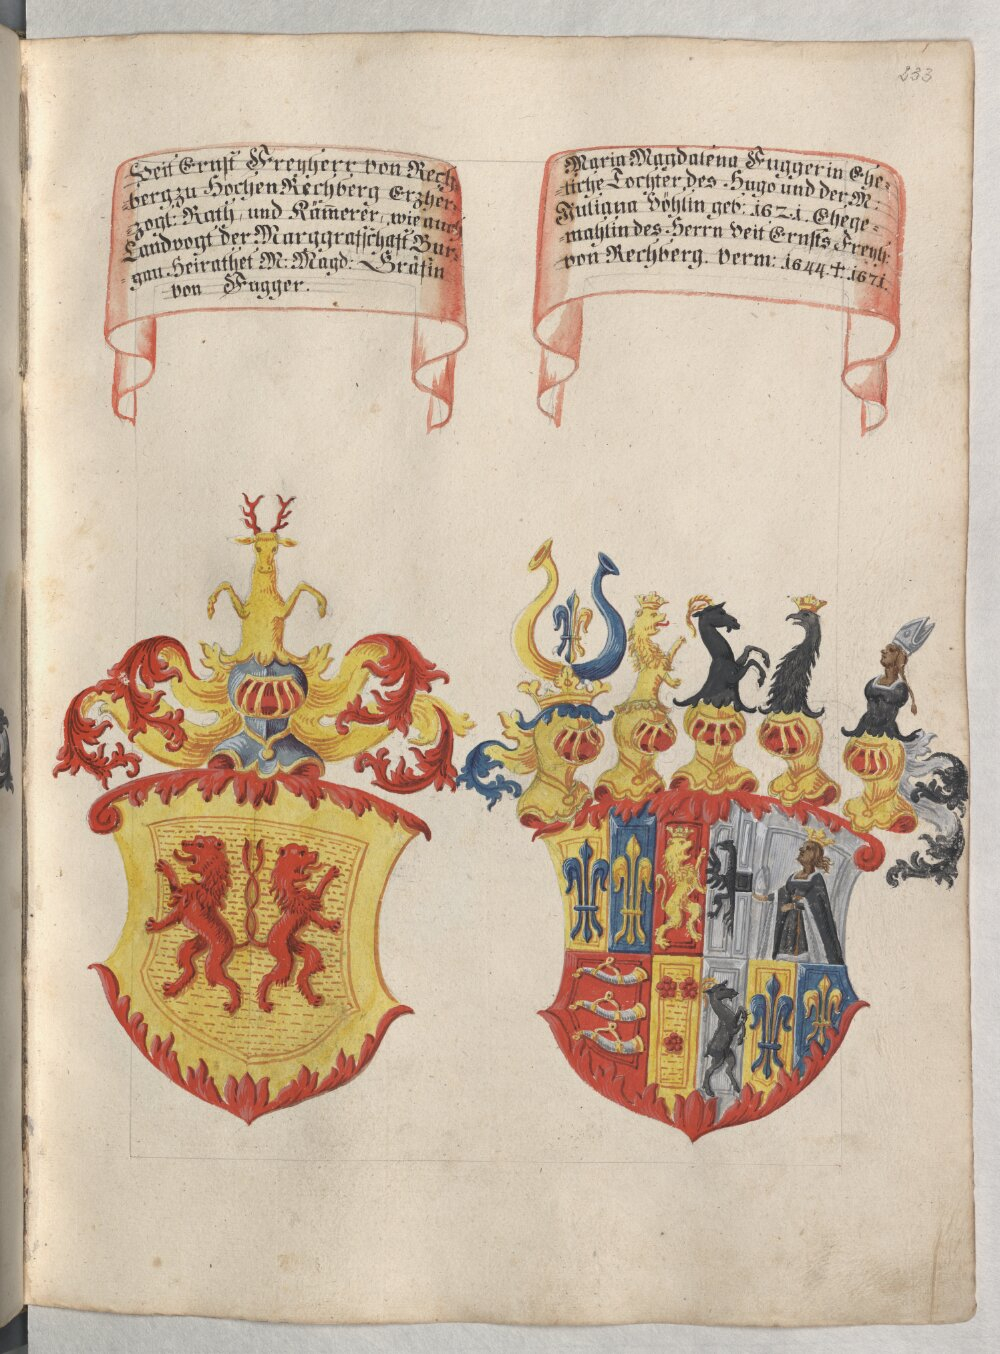 233
Veit Ernst Freyherr von Rech-
-berg zu HochenRechberg Erzher-
-zogl: Rath, und Kam̅erer, wie auch
Landvogt der Marggrafschaft Bur-
-gau. Heirathet M: Magd: Gräfin
von Fugger.
Maria Magdalena Fuggerin Ehe-
-liche Tochter des Hugo und der M:
Juliana Vöhlin geb: 1621. Ehege-
-mahlin des Herrn Veit Ernsts Freyh:
von Rechberg. verm: 1644. †: 1671.